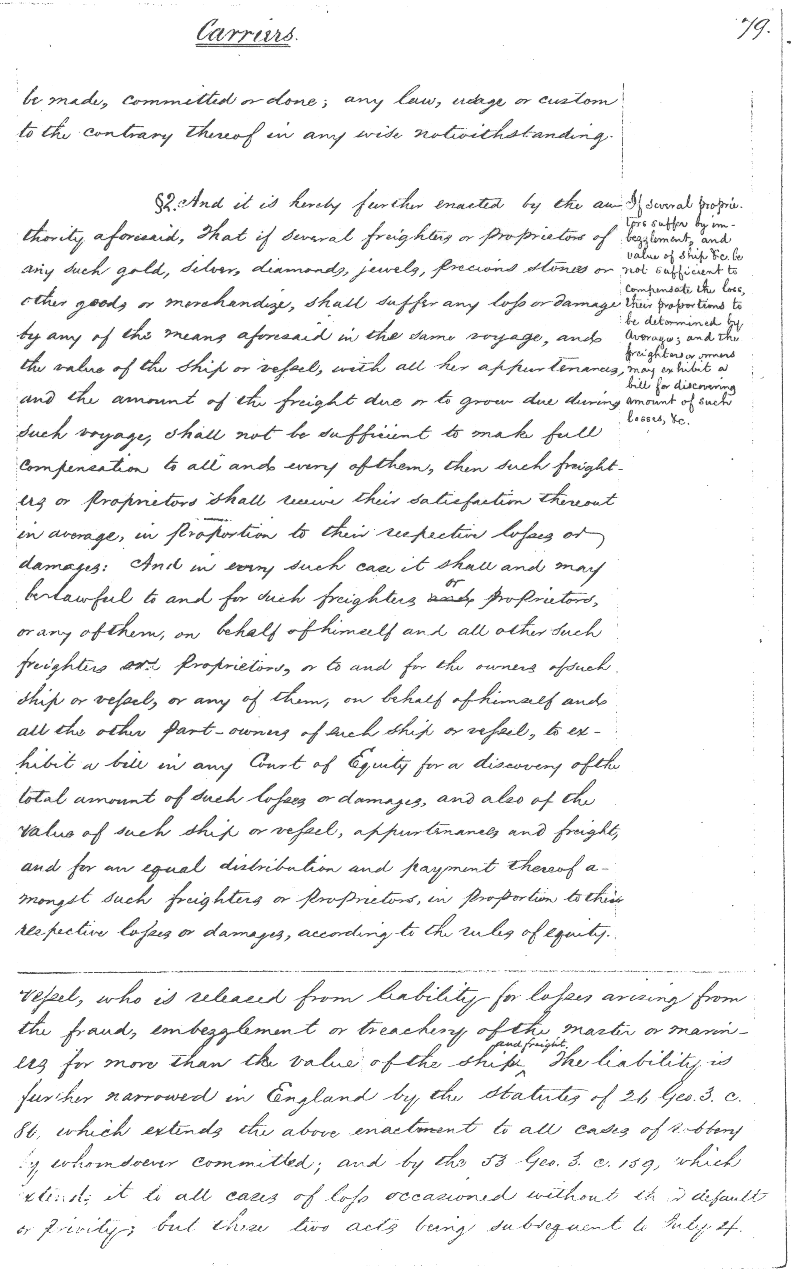 Carriers.
79.
be made, committed or done; any law, usage or custom
to the contrary thereof in any wise notwithstanding.
§2. And it is hereby further enacted by the au-
thority aforesaid, That if several freighters or proprietors of
any such gold, silver, diamonds, jewels, precious stones or
other goods or merchandize, shall suffer any loss or damage
by any of the means aforesaid in the same voyage, and
the value of the ship or vessel, with all her appurtenances,
and the amount of the freight due or to grow due during
such voyage, shall not be sufficient to make full
compensation to all and every of them, then such freight-
ers or proprietors shall receive their satisfaction thereout
in average, in proportion to their respective losses or
damages: And in every such case it shall and may
or
be lawful to and for such freighters and proprietors,
or any of them, on behalf of himself and all other such
freighters and proprietors, or to and for the owners of such
ship or vessel, or any of them, on behalf of himself and
all the other part-owners of such ship or vessel, to ex-
hibit a bill in any Court of Equity for a discovery of the
total amount of such losses or damages, and also of the
value of such ship or vessel, appurtenances and freight,
and for an equal distribution and payment thereof a-
mongst such freighters or proprietors, in proportion to their
respective losses or damages, according to the rules of equity.
If several proprie-
tors suffer by em-
bezzlement, and
value of ship &c. be
not sufficient to
compensate the loss,
their proportions to
be determined by
Average; and the
freighters or owners
may exhibit a
bill for discovering
amount of such
losses, &c.
vessel, who is released from liability for losses arising from
the fraud, embezzlement or treachery of the master or marin-
and freight.
ers for more than the value of the ship^ The liability is
further narrowed in England by the statutes of 26 Geo. 3. c.
86, which extends the above enactment to all cases of robbery
by whomsoever committed; and by the 53 Geo. 3. c. 159, which
extends it to all cases of loss occasioned without the default
or privity; but these two acts being subsequent to July 4.